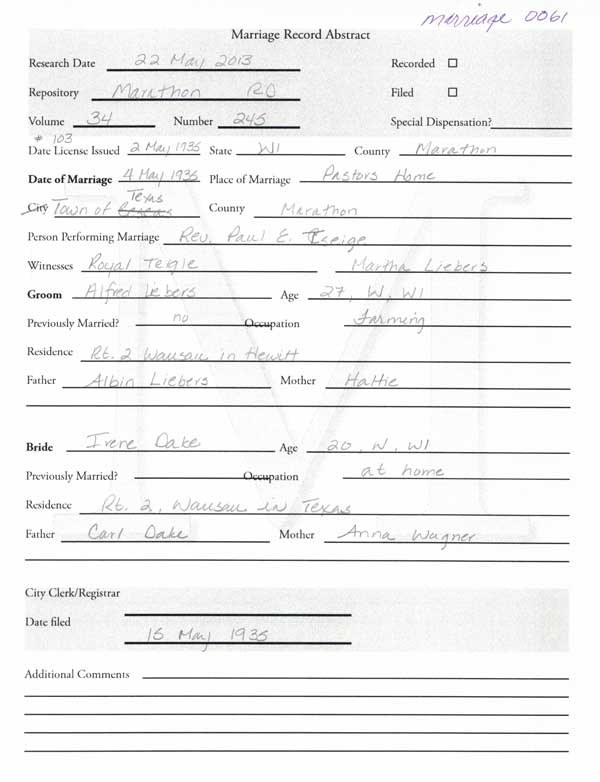 marriage 0061
Marriage Record Abstract
Research Date 22 May 2013 Recorded ☐
Repository Marathon RD Filed ☐
Volume 34 Number 245 Special Dispensation?
# 103
Date License Issued 2 May 1935 State WI County Marathon
Date of Marriage 4 May 1935 Place of Marriage Pastors Home
Texas
City Town of County Marathon
Person Performing Marriage Rev. Paul E.
Witnesses Royal Teigle Martha Liebers
Groom Alfred Liebers Age 27, W, WI
Previously Married? no Occupation Farming
Residence Rt. 2 Wausau in Hewitt
Father Albin Liebers Mother Hattie
Bride Irene Dake Age 20, W, WI
Previously Married? Occupation at home
Residence Rt. 2, Wausau in Texas
Father Carl Dake Mother Anna Wagner
City Clerk/Registrar
Date filed
15 May 1935
Additional Comments